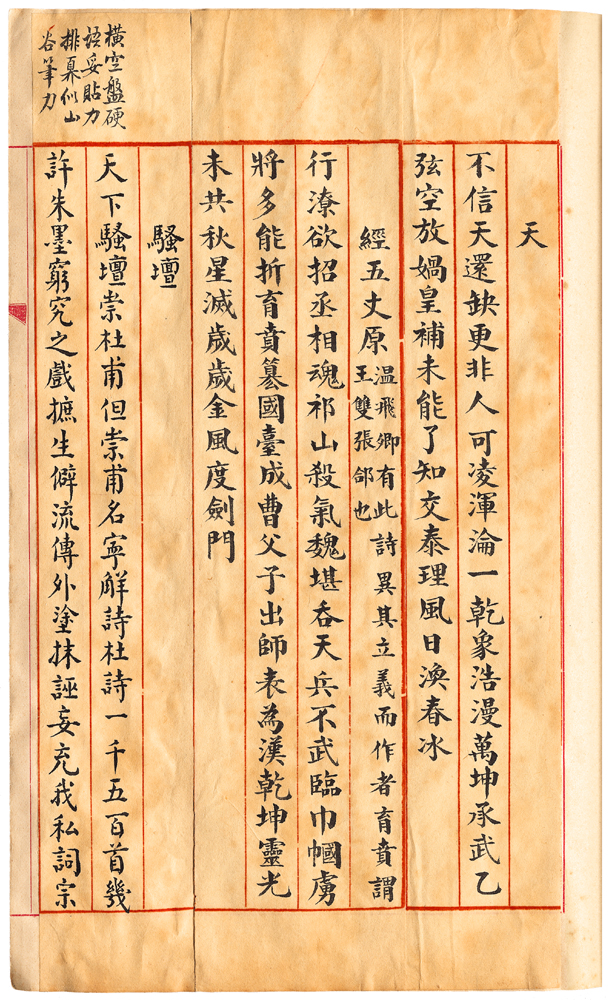 天
不信天還缺更非人可凌渾淪一乾象浩漫萬坤承武乙
弦空放媧皇補未能了知交泰理風日渙春冰
經五丈原温飛卿有此詩異其立義而作者育賁謂
王雙張郃也
行潦欲招丞相魂祁山殺氣魏堪吞天兵不武臨巾幗虜
將多能折育賁篡國臺成曹父子出師表為漢乾坤靈光
未共秋星滅歲歲金風度劍門
騷壇
天下騷壇崇杜甫但崇甫名寧解詩杜詩一千五百首幾
許朱墨窮究之戲摭生僻流傳外塗抹誣妄充我私詞宗
橫空盤硬
語妥貼力
排奡似山
谷筆力